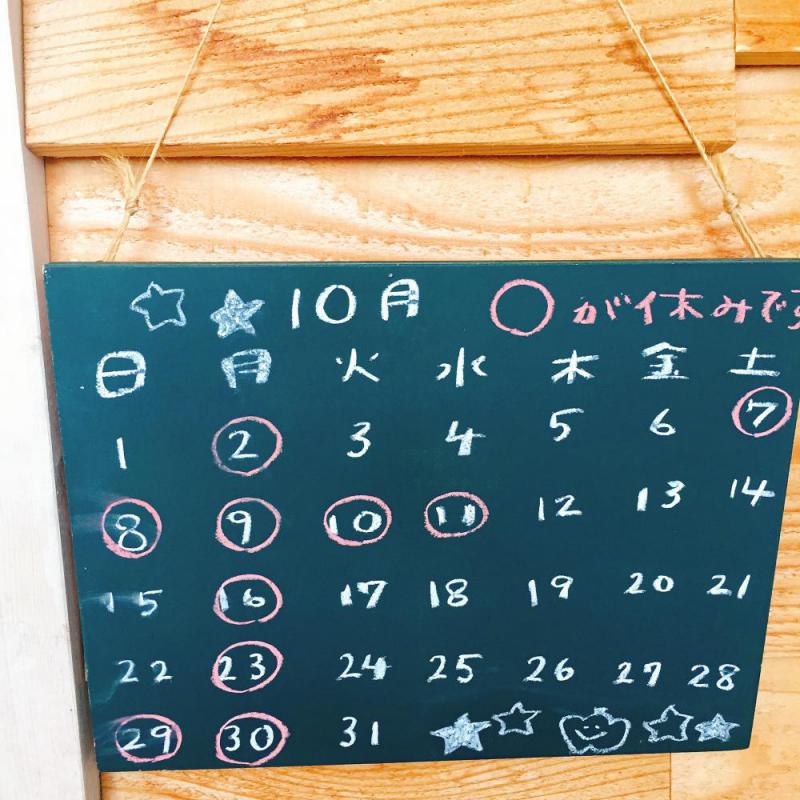 10月 ○が休みです
日 月 火 水 木 金 土
1 2 3 4 5 6 7
8 9 10 11 12 13 14
15 16 17 18 19 20 21
22 23 24 25 26 27 28
29 30 31